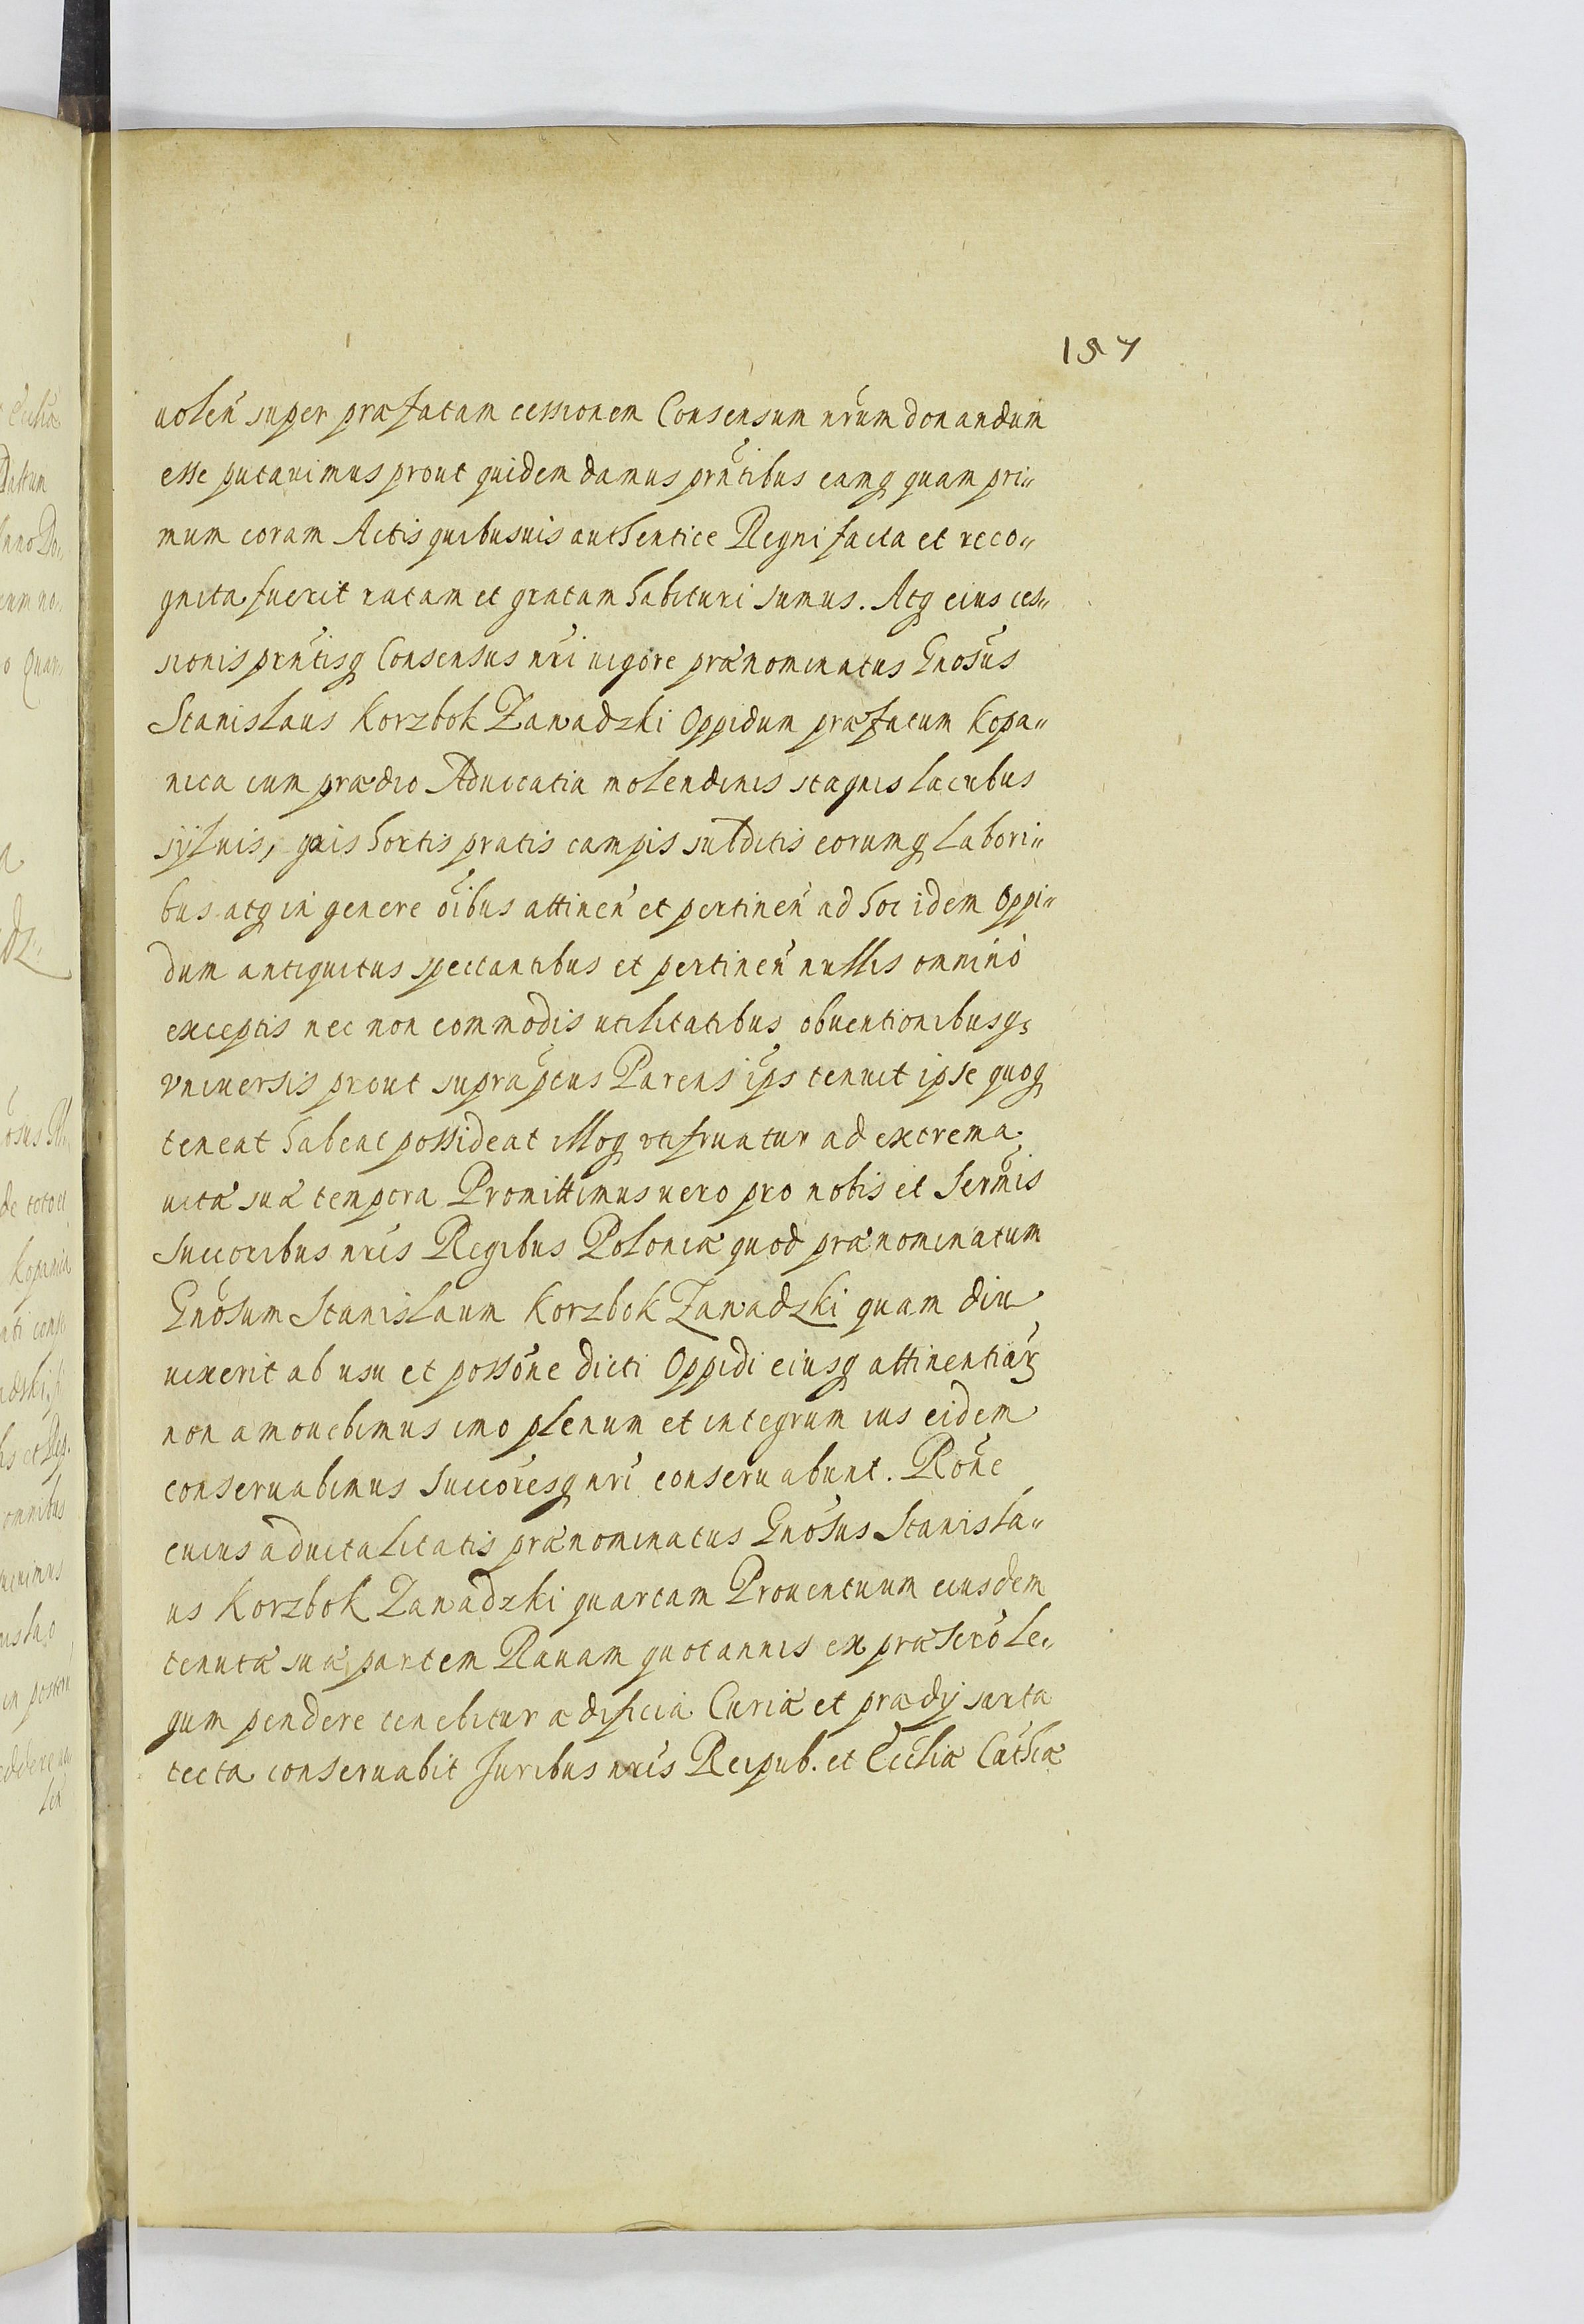 157
uolen̄ super præfatam cessionem Consensum nr̄um donandum
esse putauimus prout quidem damus prn̄tibus eamq quam pri„
mum coram Actis quibusuis authentice Regni facta et reco„
gnita fuerit ratam et gratam habituri sumus. Atq eius ces„
sionis prn̄tisq Consensus nr̄i uigore prænominatus Gnōsus
Stanislaus Korzbok Zawadzki Oppidum præfatum Kopa„
nica cum prædio Aduocatia molendinis stagnis lacubus
syluis, gais hortis pratis campis subditis eorumq labori„
bus atq in genere oībus attinen̄ et pertinen̄ ad hoc idem Oppi„
dum antiquitus spectantibus et pertinen̄ nullis omninò
exceptis nec non commodis utilitatibus obuentionibusq;
vniuersis prout supraptūs Parens ip̄s tenuit ipse quoq
teneat habeat possideat illoq utifruatur ad extrema
uitæ suæ tempora Promittimus uero pro nobis et Serm̄is
Succoribus nr̄is Regibus Poloniæ quod prænominatum
Gnōsum Stanislaum Korzbok Zawadzki quam diu
uixerit ab usu et possōne dicti Oppidi eiusq attinentiar̄
non amouebimus imo plenum et integrum ius eidem
conseruabimus Succōresq nr̄i conseruabunt. Rōne
cuius aduitalitatis prænominatus Gnōsus Stanisla„
us Korzbok Zawadzki quartam Prouentuum eiusdem
tenutæ suæ partem Rauam quotannis ex præscrō le„
gum pendere tenebitur ædificia Curiæ et prædij sarta
tecta conseruabit Juribus nr̄is Reipub. et Eccliæ Cathcæ